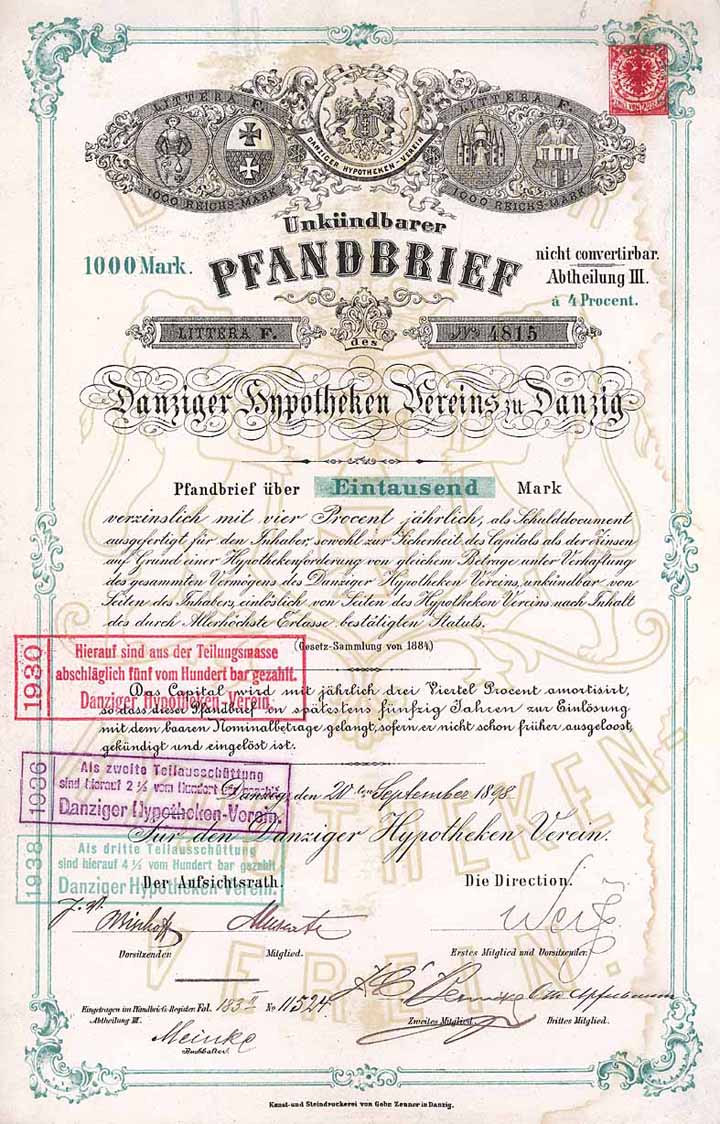 LITTERA F.
1000 REICHS-MARK
DANZIGER HYPOTHEKEN-VEREIN
LITTERA F.
1000 REICHS-MARK
Unkündbarer
1000 Mark.
PFANDBRIEF
nicht convertirbar.
Abtheilung III.
à 4 Procent.
LITTERA F.
des
No 4815
Danziger Hypotheken Vereins zu Danzig
Pfandbrief über Eintausend Mark
verzinslich mit vier Procent jährlich, als Schulddocument
ausgefertigt für den Inhaber, sowohl zur Sicherheit des Capitals als der Zinsen
auf Grund einer Hypothekenforderung von gleichem Betrage unter Verhaftung
des gesammten Vermögens des Danziger Hypotheken Vereins, unkündbar von
Seiten des Inhabers, einlöslich von Seiten des Hypotheken Vereins nach Inhalt
des durch Allerhöchste Erlasse bestätigten Statuts.
(Gesetz-Sammlung von 1884)
1930
Hierauf sind aus der Teilungsmasse
abschläglich fünf vom Hundert bar gezahlt.
Danziger Hypotheken-Verein.
Das Capital wird mit jährlich drei Viertel Procent amortisirt,
so dass dieser Pfandbrief in spätestens fünfzig Jahren zur Einlösung
mit dem baaren Nominalbetrage gelangt, sofern er nicht schon früher ausgeloost,
gekündigt und eingelöst ist.
1936
Als zweite Teilausschüttung
sind hierauf 2 ½ vom Hundert bar gezahlt
Danziger Hypotheken-Verein.
Danzig, den 20ten September 1898.
Für den Danziger Hypotheken Verein.
1938
Als dritte Teilausschüttung
sind hierauf 4 ½ vom Hundert bar gezahlt
Danziger Hypotheken-Verein.
Der Aufsichtsrath.
Die Direction.
J. V.
Vorsitzender
Mitglied.
Erstes Mitglied und Vorsitzender.
Zweites Mitglied.
Drittes Mitglied.
Eingetragen im Pfandbriefs-Register Fol. 183 II No 11524
Abtheilung III.
Meinke
Buchhalter.
Kunst- und Steindruckerei von Gebr. Zeuner in Danzig.
HYPOTHEKEN-
VEREIN.